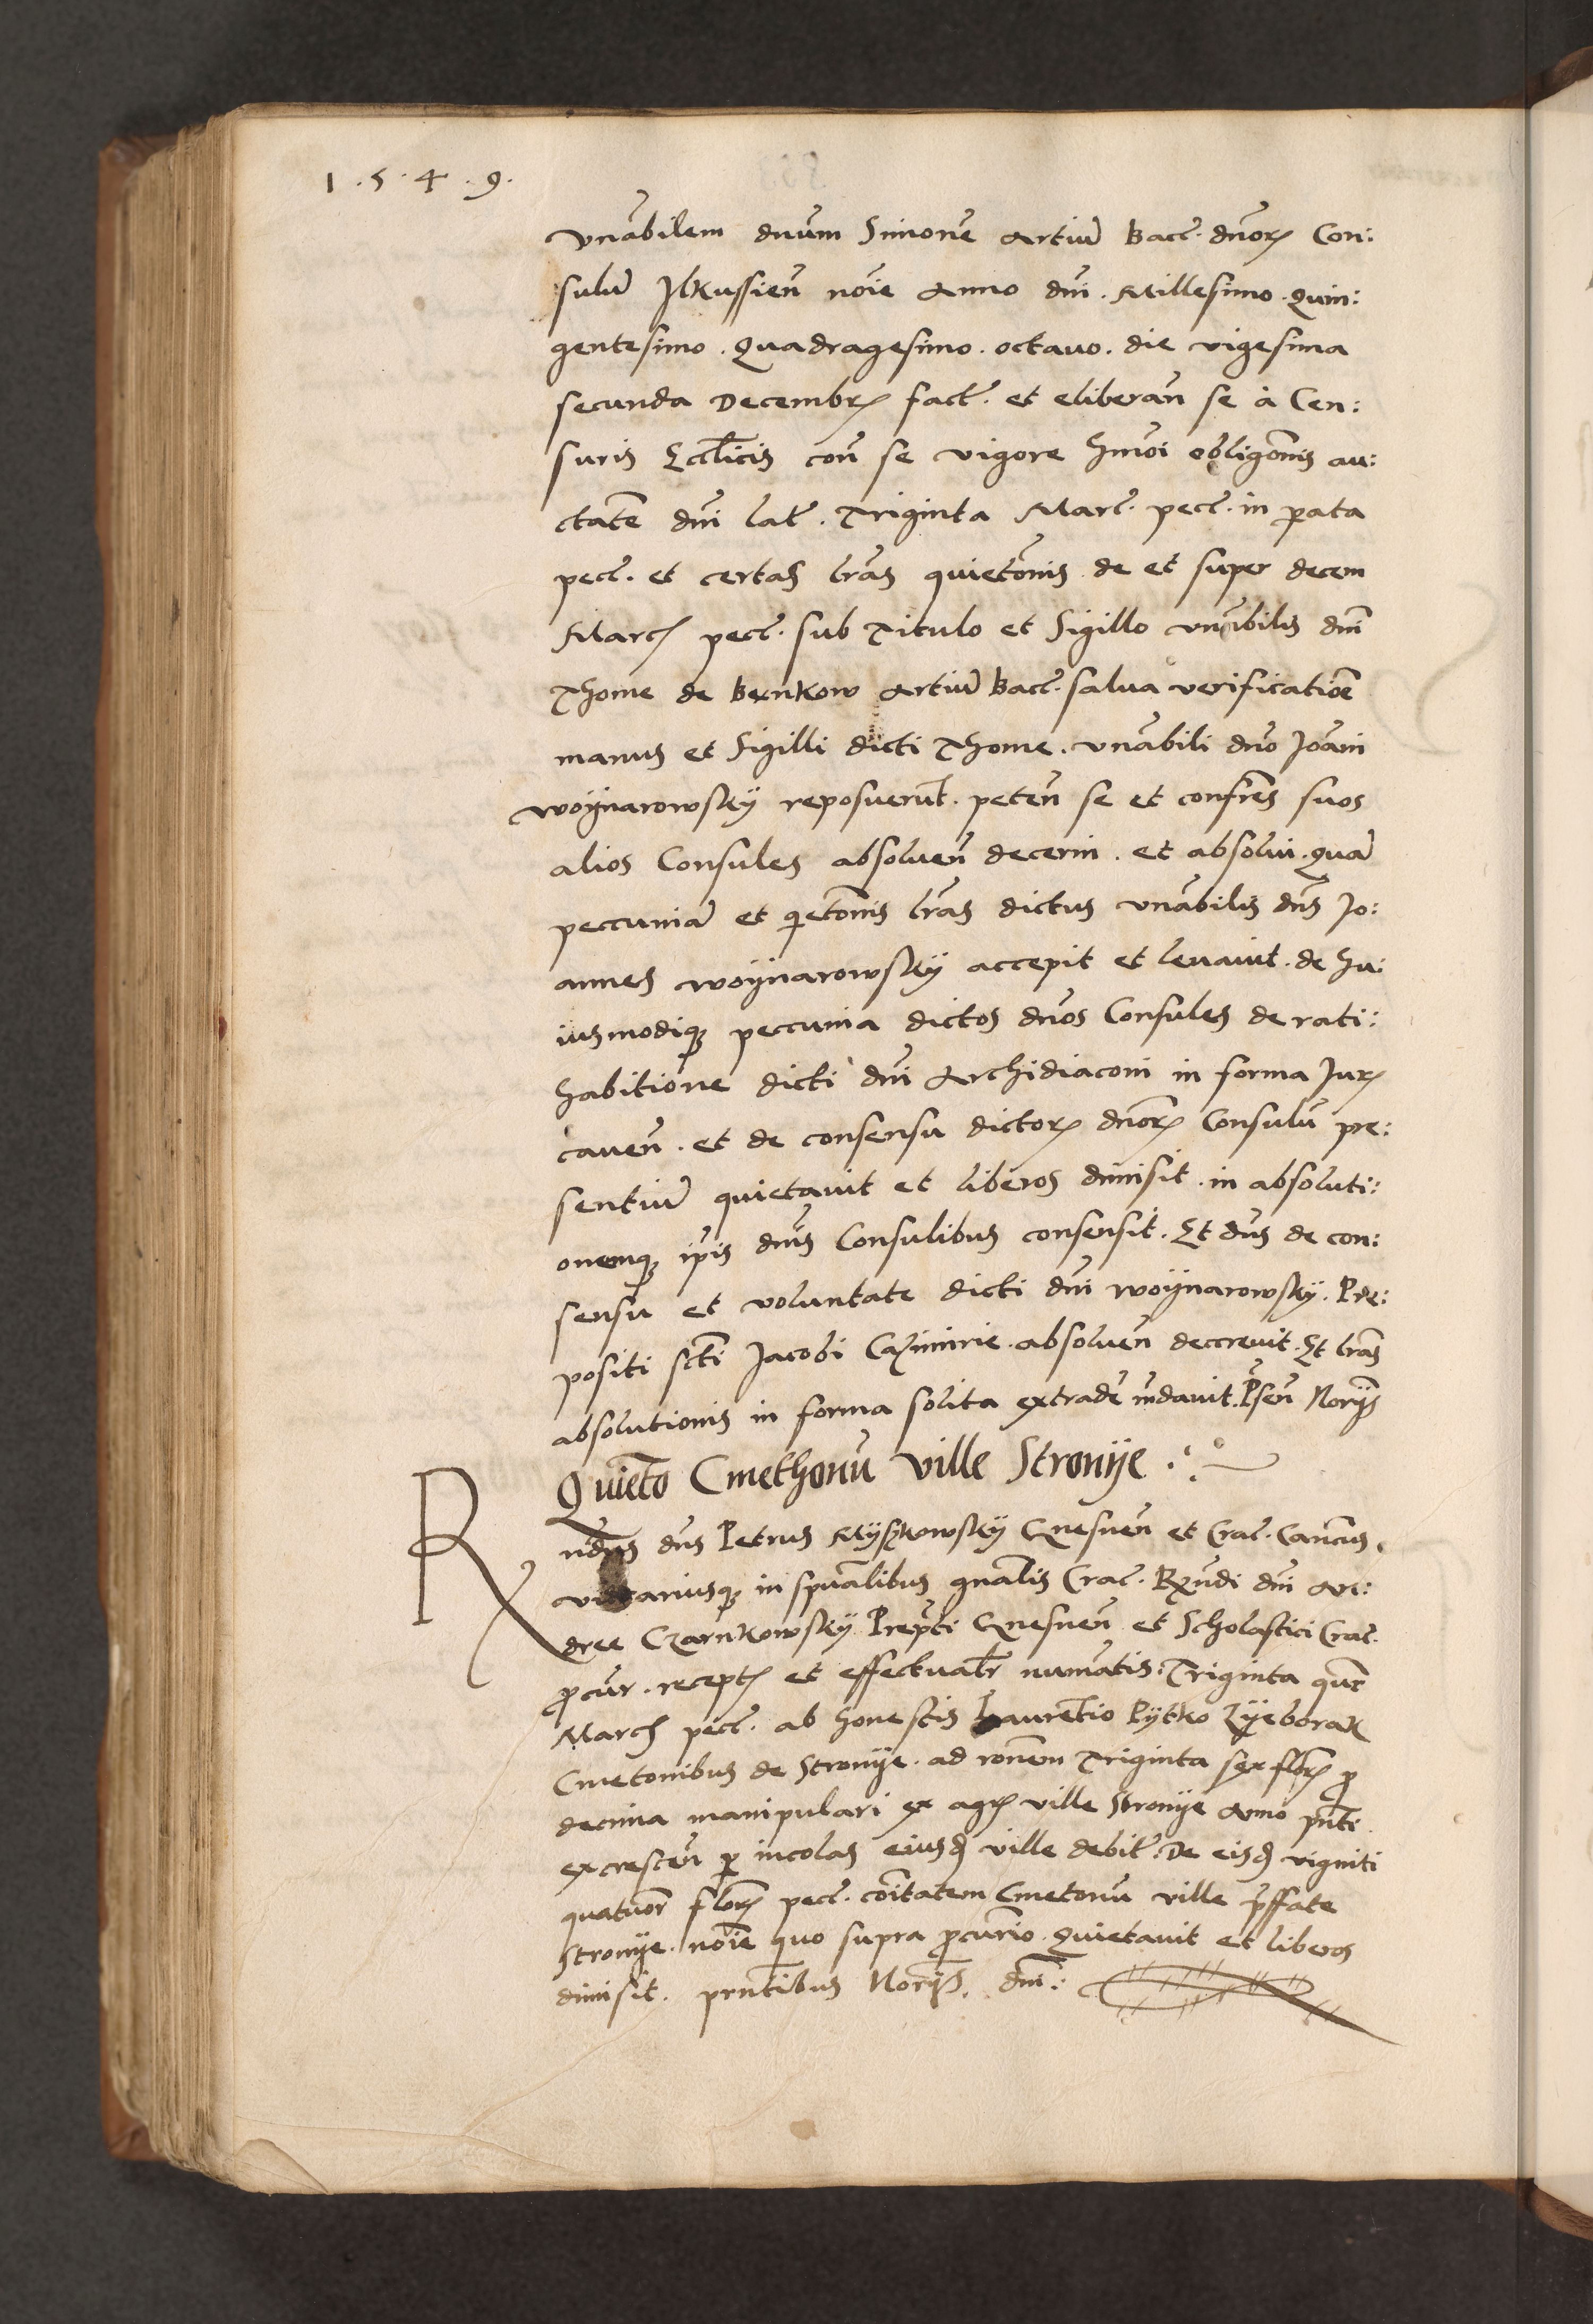 1.5.4.9.
vnabilem dnum Simone Artiu Bacc. dnor Con:
sulu Ilkussien noie Anno dni. Millesimo. Quin:
gentesimo. Quadragesimo. octauo. die vigesima
secunda Decembr fact. et eliberan se à Cen:
suris Eccliicis con se vigore hmoi obligonis au:
ctate dni lat. Triginta Marc. pecc. in parata
pecc. et certas lras quietonis de et super decem
Marc pecc. sub Titulo et Sigillo vnabilis dni
Thome de Benkow Artiu Bacc. salua verificatioe
manus et Sigilli dicti Thome. vnabili dno Joani
woynarowsky reposuerut. peten se et confres suos
alios Consules absoluen decerni. et absolui. Qua
peccunia et qietonis lras dictus vnabilis dns Jo:
annes woynarowsky accepit et leuauit. de hu:
iusmodiq peccunia dictos dnos Consules de rati:
habitione dicti dni Archidiaconi in forma Jur
cauen. et de consensu dictor dnor Consulu pre:
sentiu quietauit et liberos dimisit. in absoluti:
onemq ipis dnis Consulibus consensit. Et dns de con:
sensu et voluntate dicti dni woynarowsky. Pre:
positi scti Jacobi Cazimirie. absoluen decreuit. Et lras
absolutionis in forma solita extrade mdauit. Psen Norijs
Quieto Cmethonu ville Stronye.
Rndus dns Petrus Myskowsky Gnesnen et Crac. Cancus,
vicariusq in spualibus gnalis Crac. Rxndi dni An:
dree Czarnkowsky Prepti Gnesnen et Scholastici Crac.
procur. recept et effectualr numatis: Triginta quc
Marc pecc. ab honestis Laurentio Pytko Zyeborak
Cmetonibus de Stronye. ad ronem Triginta sex flor p
decima manipulari ex agr ville Stronye Anno pnti
excrescen p incolas eiusd ville debit. De eisd viginti
quatuor flor pecc. coitatem Cmetonu ville pffate
Stronye. noie quo supra pcurio. Quietauit et liberos
dimisit. pntibus Norijs. dni: